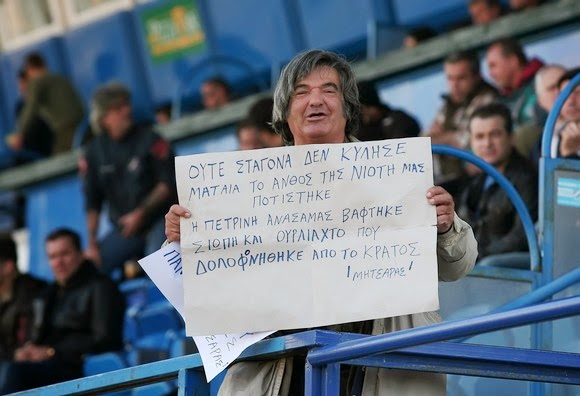 ΟΥΤΕ ΣΤΑΓΟΝΑ ΔΕΝ ΚΥΛΗΣΕ
ΜΑΤΑΙΑ ΤΟ ΑΝΘΟΣ ΤΗΣ ΝΙΟΤΗ ΜΑΣ
ΠΟΤΙΣΤΗΚΕ
Η ΠΕΤΡΙΝΗ ΑΝΑΣΑΜΑΣ ΒΑΦΤΗΚΕ
ΣΙΩΠΗ ΚΑΙ ΟΥΡΛΙΑΧΤΟ ΠΟΥ
ΔΟΛΟΦΝΗΘΗΚΕ ΑΠΟ ΤΟ ΚΡΑΤΟΣ
'ΜΗΤΣΑΡΑΣ'